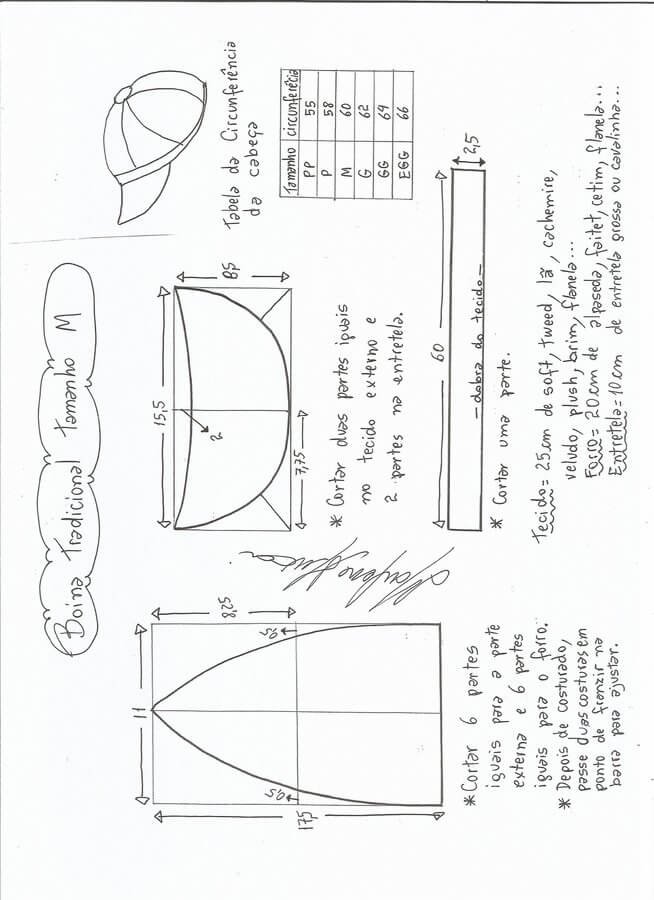 Boina Tradicional tamanho M
Tabela da Circunferência
da cabeça
Tamanho circunferêcia
PP 55
P 58
M 60
G 62
GG 64
EGG 66
11
8,25
0,5
0,5
17,5
* Cortar 6 partes
iguais para a parte
externa e 6 partes
iguais para o forro.
* Depois de costurado,
passe duas costuras em
ponto de franzir na
barra para ajustar.
15,5
2
7,75
* Cortar duas partes iguais
no tecido externo e
2 partes na entretela.
60
2,5
- dobra do tecido -
* Cortar uma parte.
Tecido = 25 cm de soft, tweed, lã, cachemire,
veludo, plush, brim, flanela...
Forro = 20 cm de
cetim, flanela...
Entretela = 10 cm de entretela grossa ou cavalinha...